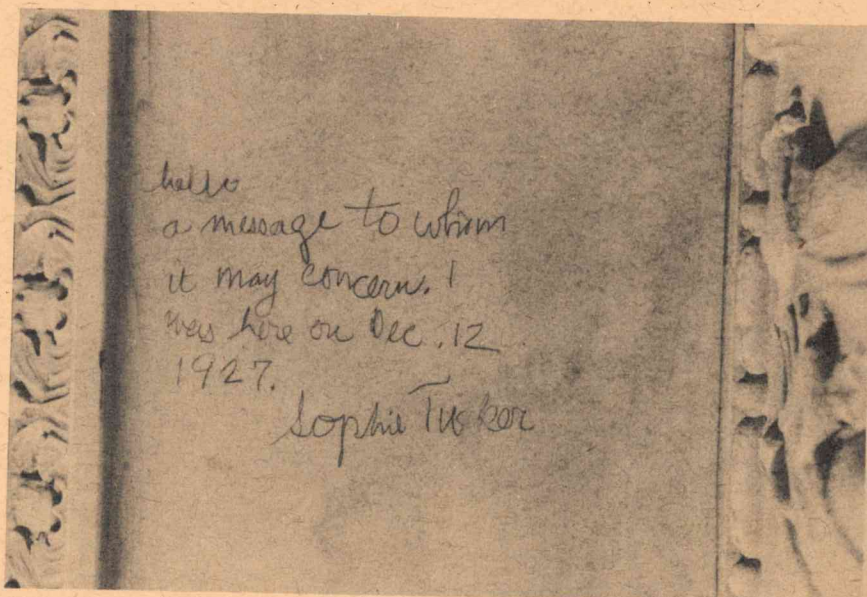 hello
a message to whom
it may concern. I
was here on Dec. 12
1927.
Sophie Tucker